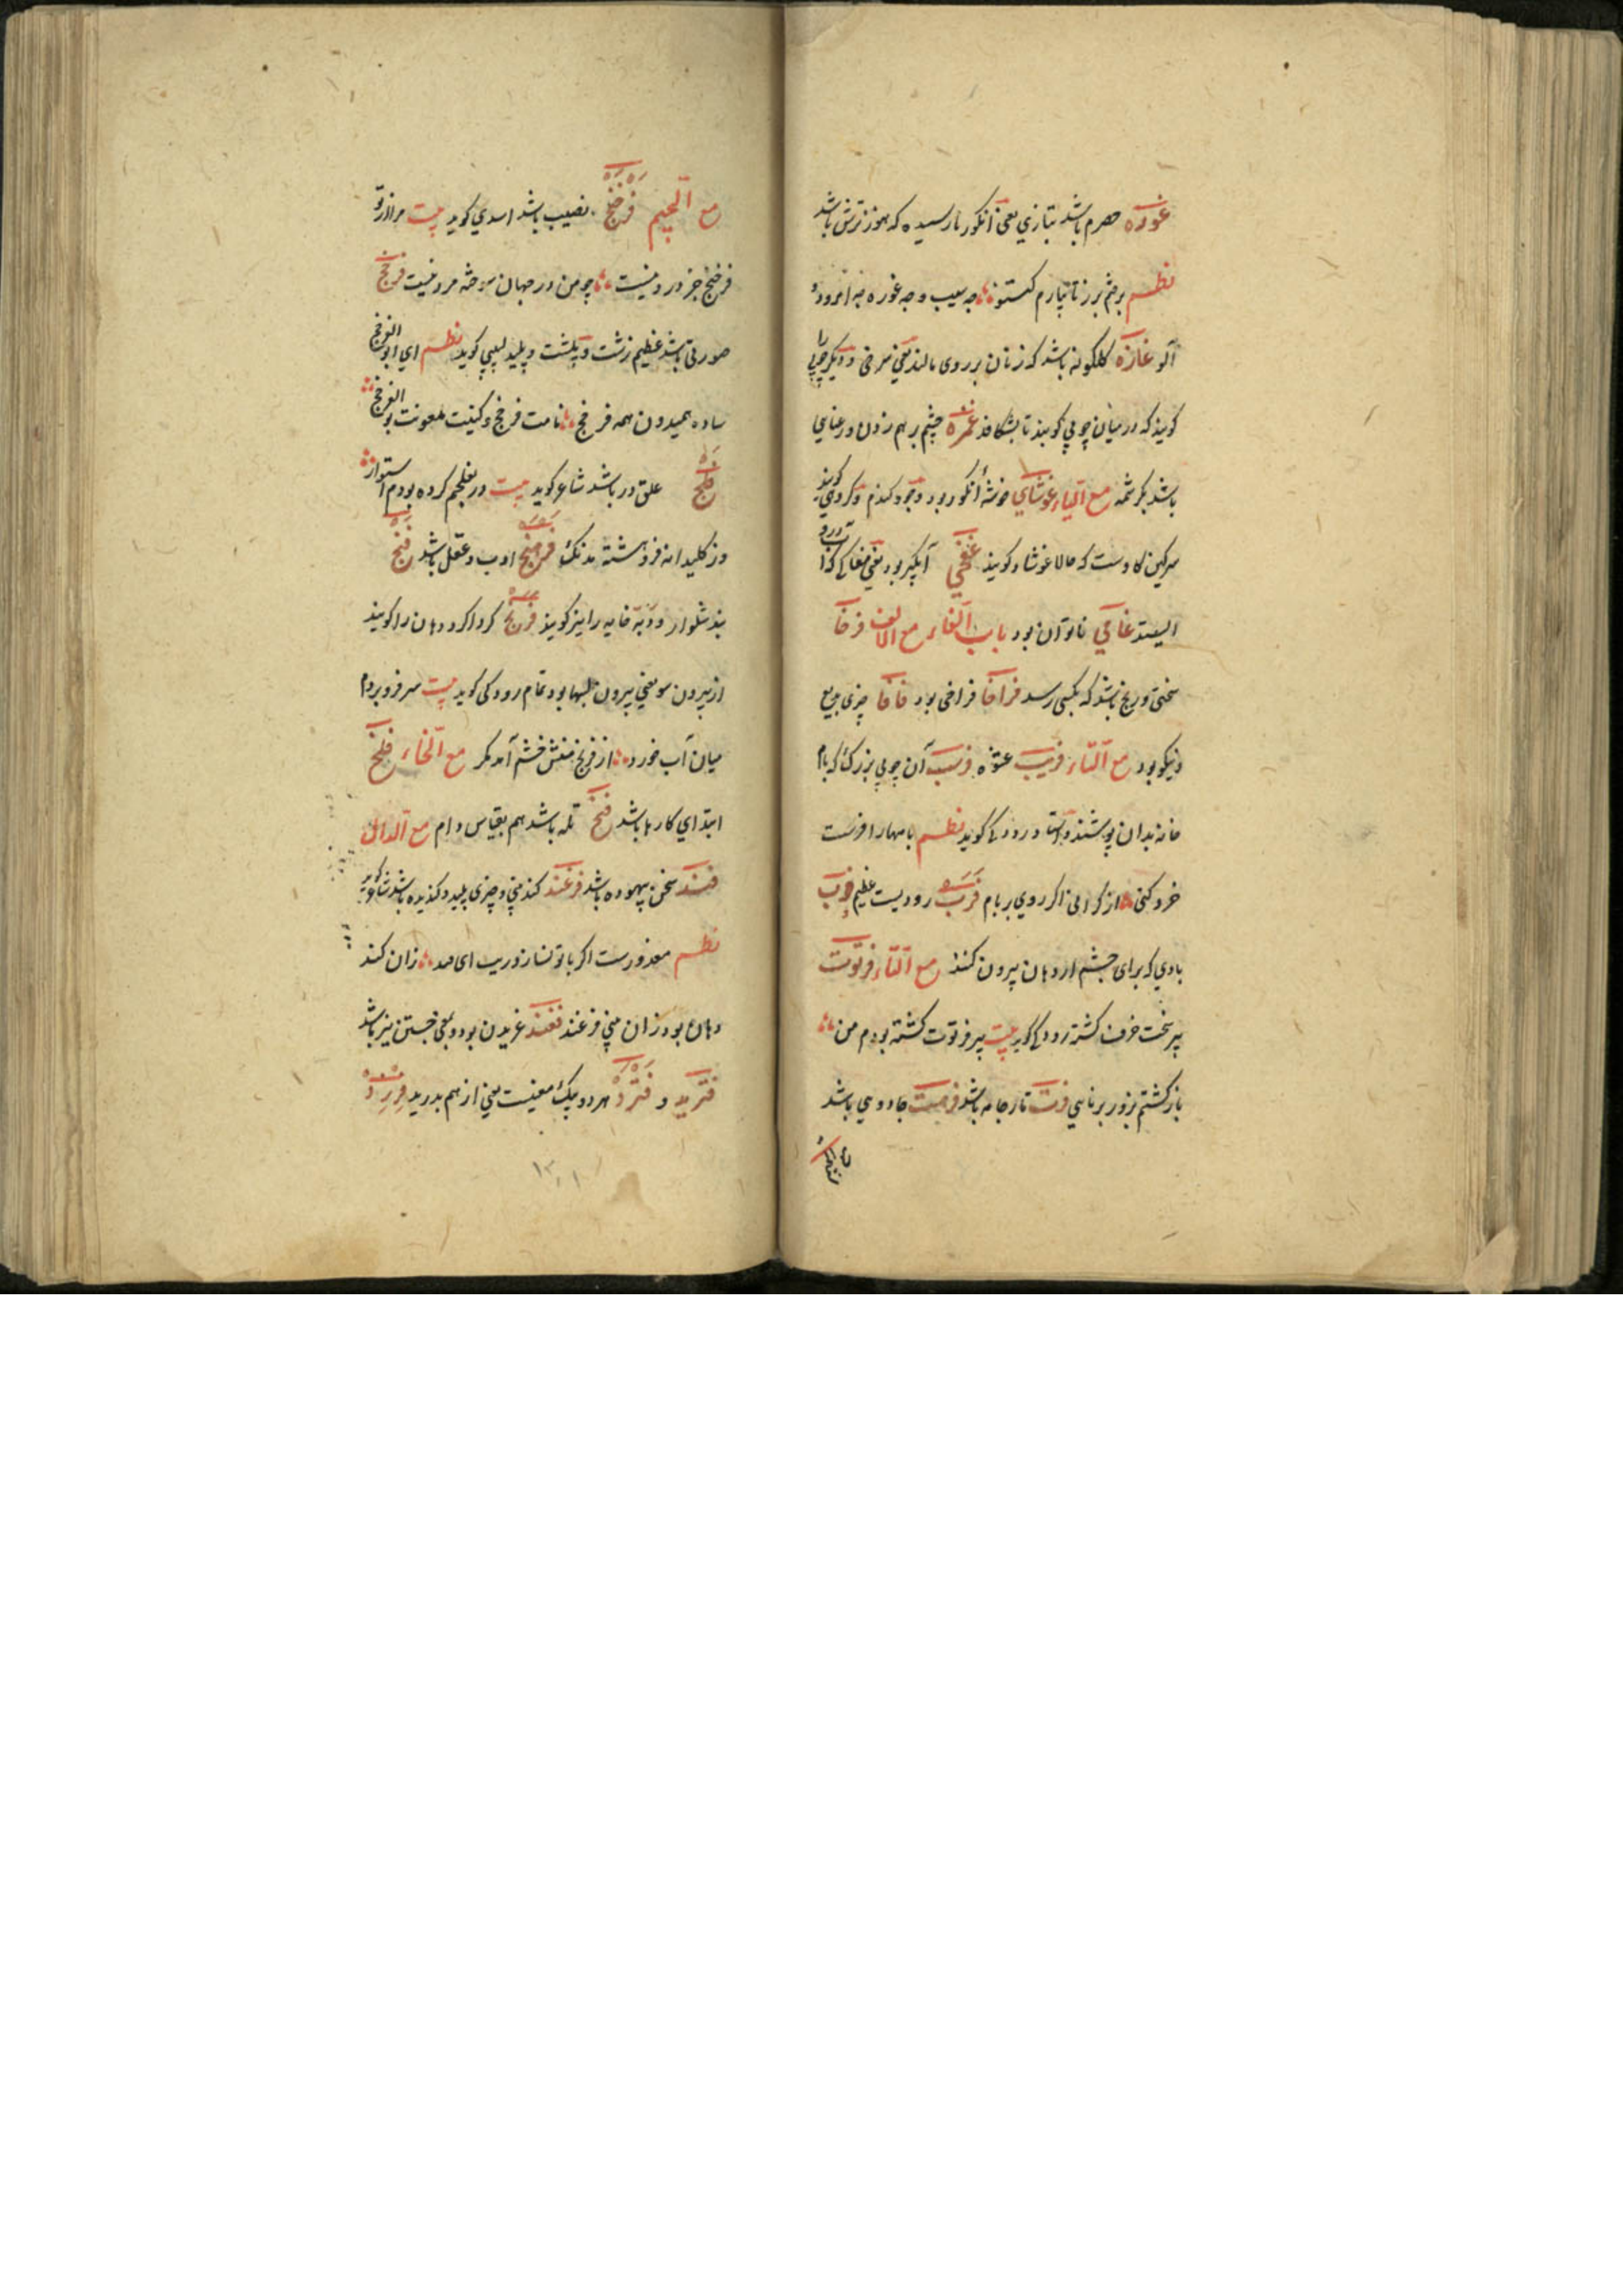 غوره حصرم باشد بتازی یعنی انکور نارسیده که هنوز ترش باشد
نظم برخیز تا بیارم کستو چه سیب و چه غوره چه امرود و
آلو غازه کلکونه باشد که زنان بر روی مالند یعنی سرخی و دیکر چوبی را
کویند که در میان چوبی کوبند تا بشکافد غمزه چشم بر هم زدن و رعنایی
باشد بکرشمه مع الیاء غوشای خوشهٔ انکور بود و جو و کندم و کروهی کویند
سرکین کاوست که حالا غوشاد کویند غفجی آبکیر بود یعنی مغاکی که آب درو
ایستد غامی ناتوان بود باب الفاء مع الالف فرخا
سختی و رنج باشد که بکسی رسد فراخا فراخی بود فافا چیزی بدیع
و نیکو بود مع الباء فریب عشوه فرسب آن چوبی بزرک که بام
خانه بدان پوشند و استاد رودکی کوید نظم بامهارا فرسب
خرد کنی از کرانی اکر روی بر بام فرب رودیست عظیم فرب
بادی که برای چشم از دهان بیرون کنند مع التاء فرتوت
پیر سخت خرف کشته رودکی کوید بیت پیر فرتوت کشته بودم من
باز کشتم بزور برنایی فرت تار جامه باشد فرهست جادویی باشد
مع الجیم فرخنج نصیب باشد اسدی کوید بیت مرا از تو
فرخنج جز درد نیست چو من در جهان سوخته مرد نیست فرخج
صورتی باشد عظیم زشت و پلشت و پلید لبیبی کوید نظم ای ابو الفرخج
ساده همیدون همه فرخج نامت فرخج و کنیت ملعونت بو الفرخج
فلج علق در باشد شاعر کوید بیت در بفلجم کرده بودم استوار
وز کلیدانه فروهشته مدنک فرهنج ادب و عقل باشد فنج
بند شلوار و دبه خایه را نیز کویند فرنج کرداکرد دهان را کویند
از بیرون سو یعنی بیرون لبها بود تمام رودکی کوید بیت سر فرو بردم
میان آب خورد از فرنج منش خشم آمد مکر مع الخاء فلخ
ابتدای کارها باشد فخ تله باشد هم بقیاس دام مع الدال
فند سخن بیهوده باشد فرغند کند منی و چیزی پلید و کندیده باشد شاعر کوید
نظم معذورست اکر با تو نسازد زنت ای زان کند
دهان بود زان منی فرغند فغند غریدن بود و بمعنی جستن نیز باشد
فترید و فترد هر دو بیک معنیست یعنی از هم بدرید فررد